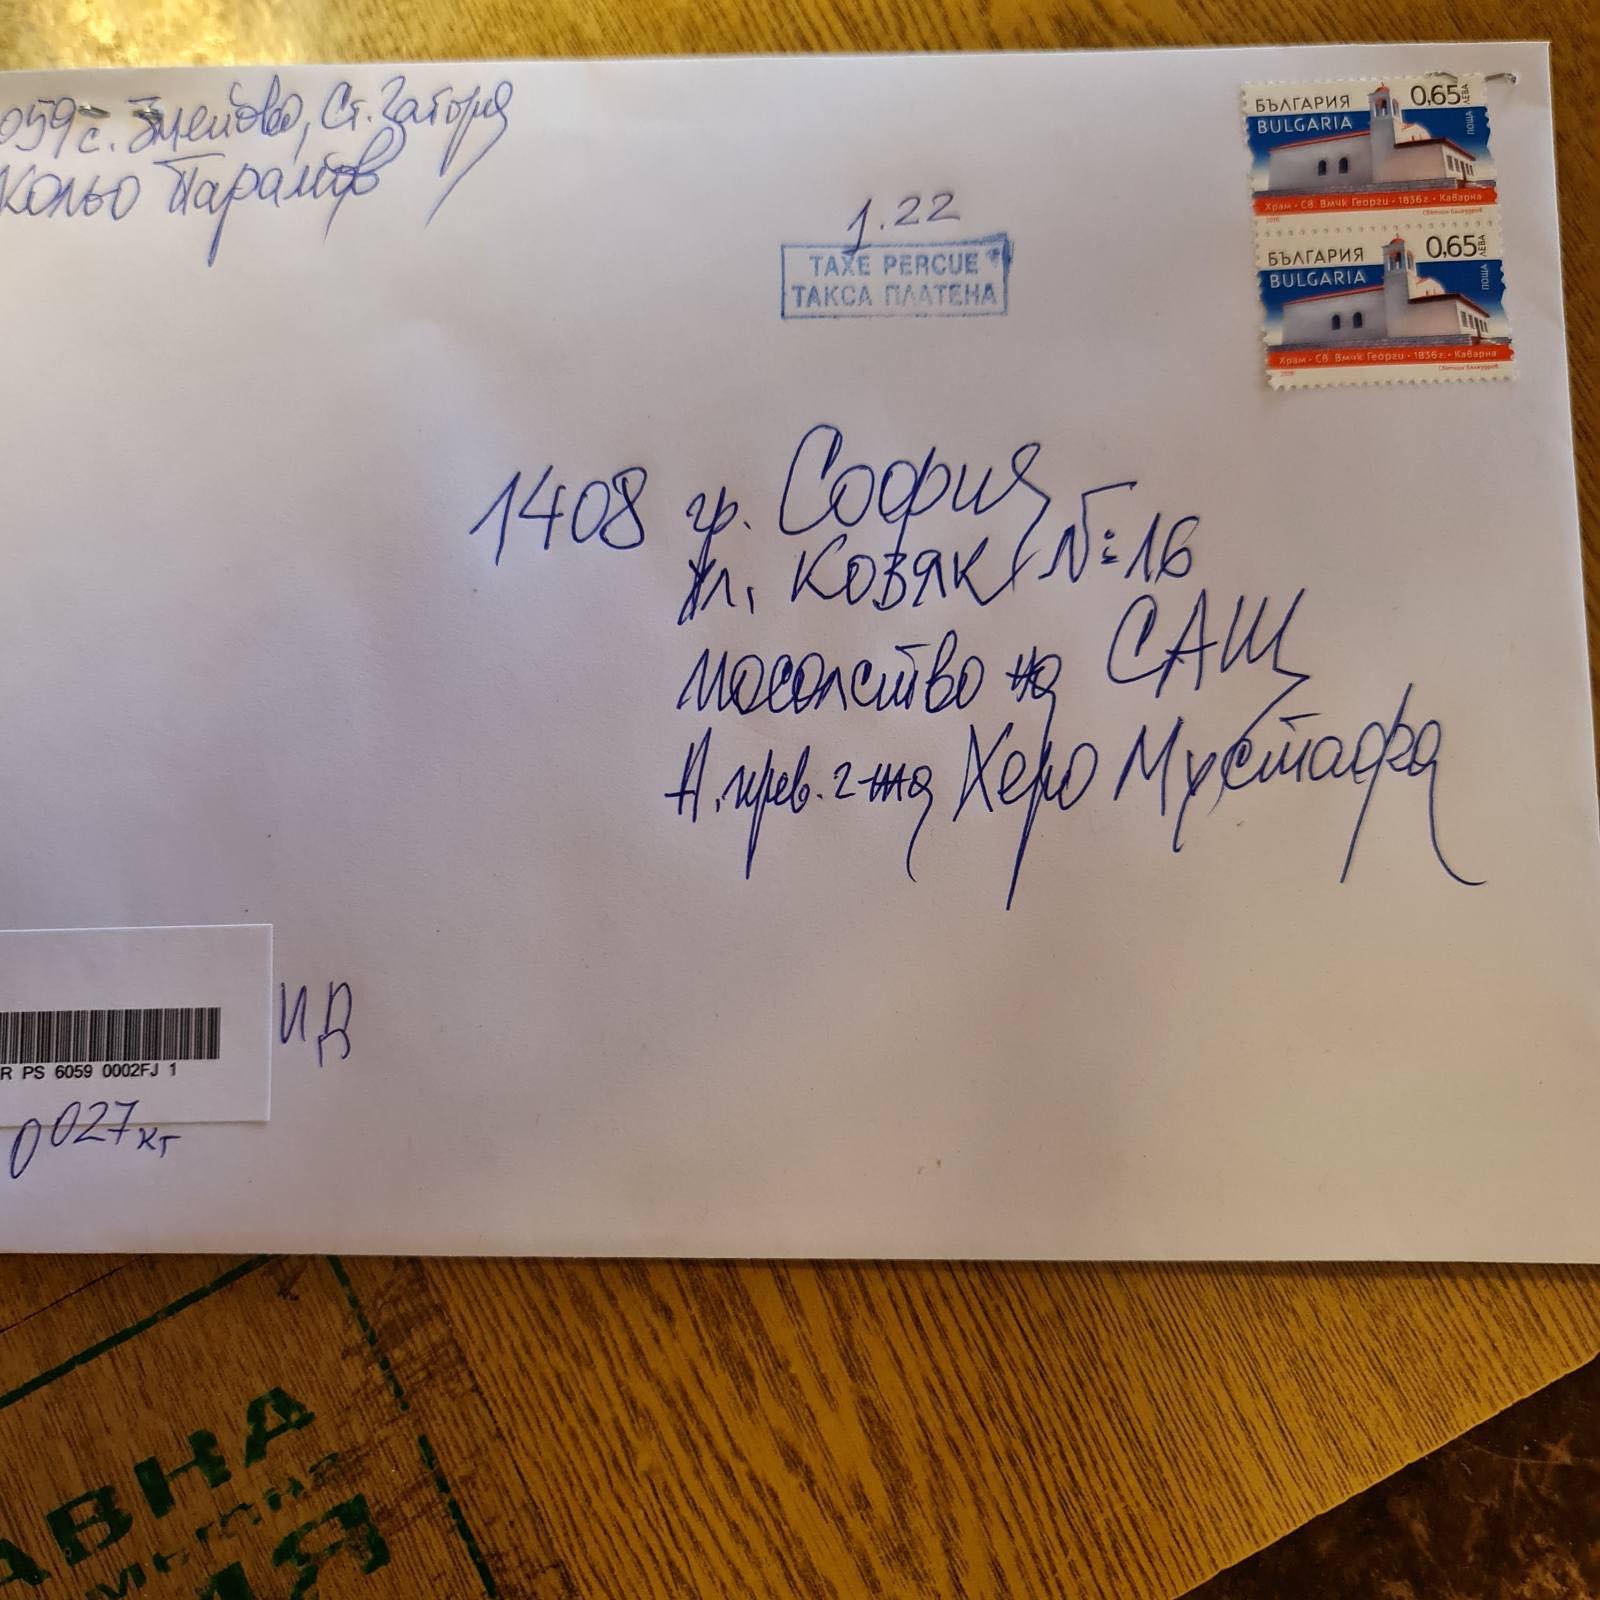 059 с. Змейово, Ст. Загора
Кольо Парамов
1.22
TAXE PERCUE
ТАКСА ПЛАТЕНА
БЪЛГАРИЯ 0,65 ЛЕВА
BULGARIA ПОЩА
Храм • Св. Вмчк Георги • 1836 г. • Каварна
2016
БЪЛГАРИЯ 0,65 ЛЕВА
BULGARIA ПОЩА
Храм • Св. Вмчк Георги • 1836 г. • Каварна
2016
1408 гр. София
ул. Козяк №16
посолство на САЩ
Н. прев. г-жа Херо Мустафа
ИД
R PS 6059 0002FJ 1
0027 кг
АВНА
ИЯ